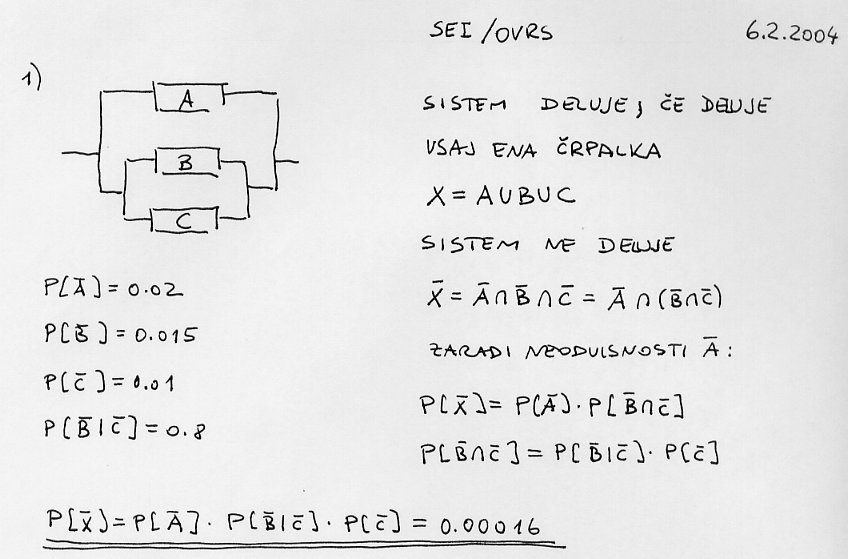 SEI/OVRS 6.2.2004
1)
A
B
C
P[Ā] = 0.02
P[B̄] = 0.015
P[C̄] = 0.01
P[B̄|C̄] = 0.8
SISTEM DELUJE, ČE DELUJE
VSAJ ENA ČRPALKA
X = A∪B∪C
SISTEM NE DELUJE
X̄ = Ā∩B̄∩C̄ = Ā∩(B̄∩C̄)
ZARADI NEODVISNOSTI Ā:
P[X̄] = P[Ā]·P[B̄∩C̄]
P[B̄∩C̄] = P[B̄|C̄]·P[C̄]
P[X̄] = P[Ā]·P[B̄|C̄]·P[C̄] = 0.00016